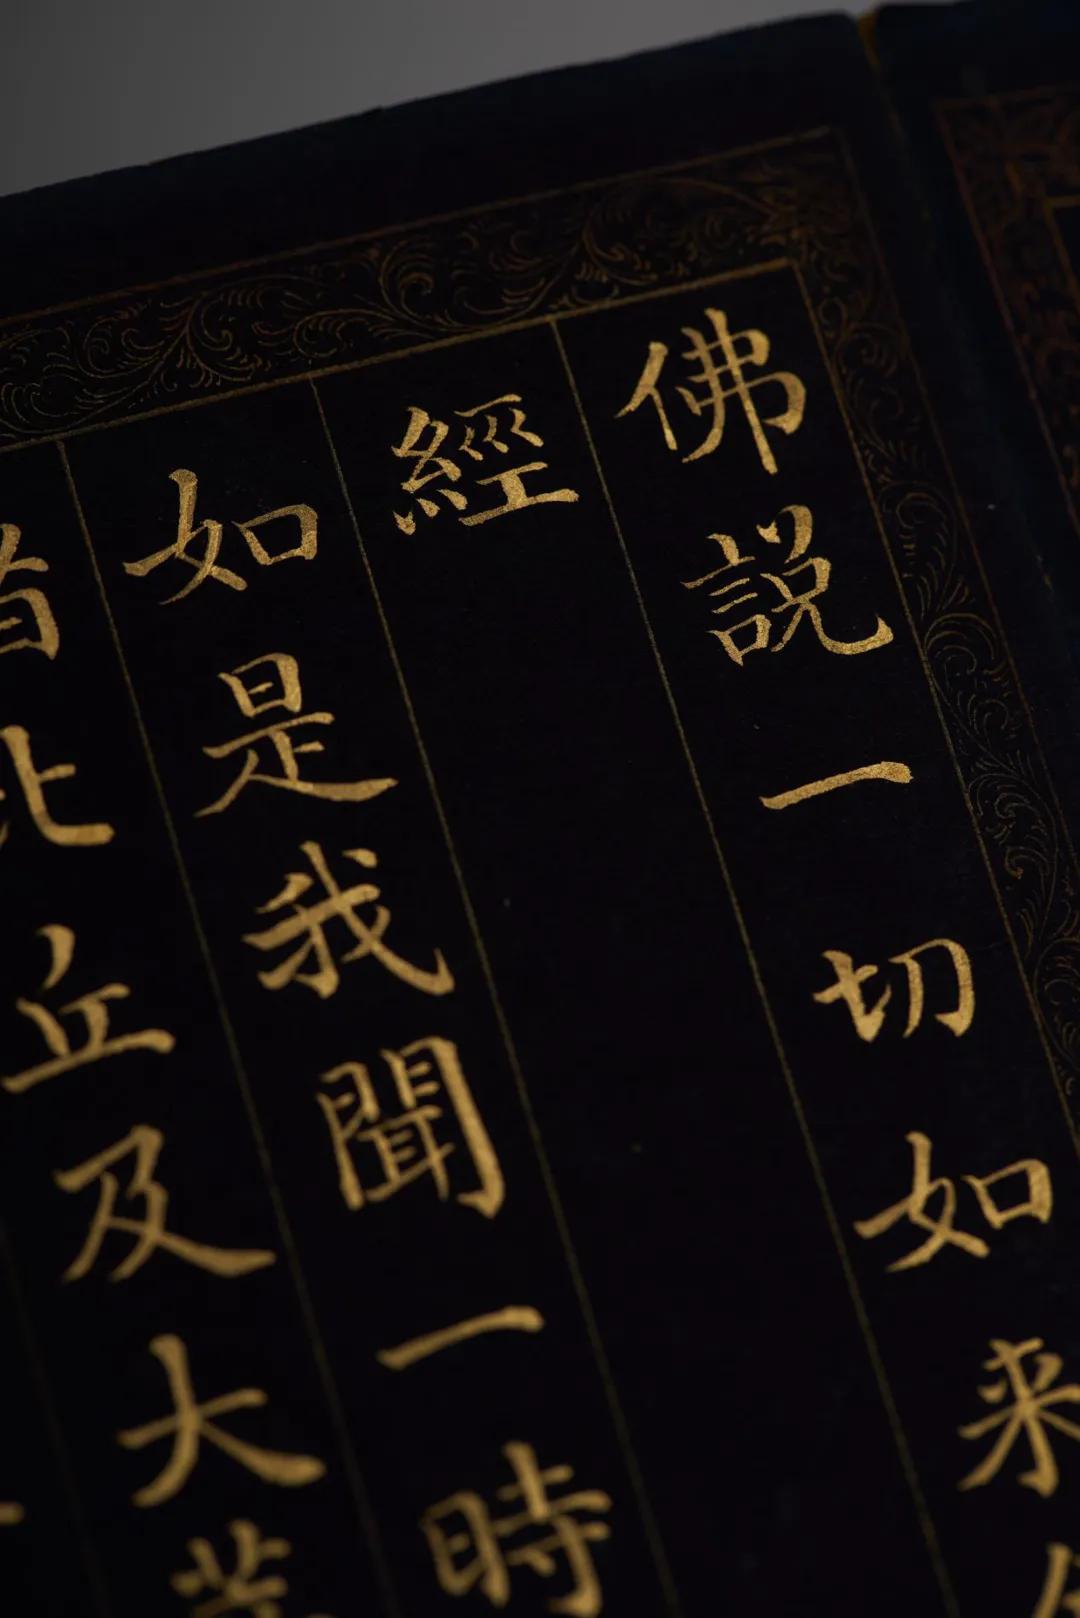 佛說一切如来
經
如是我聞一時
比丘及大菩